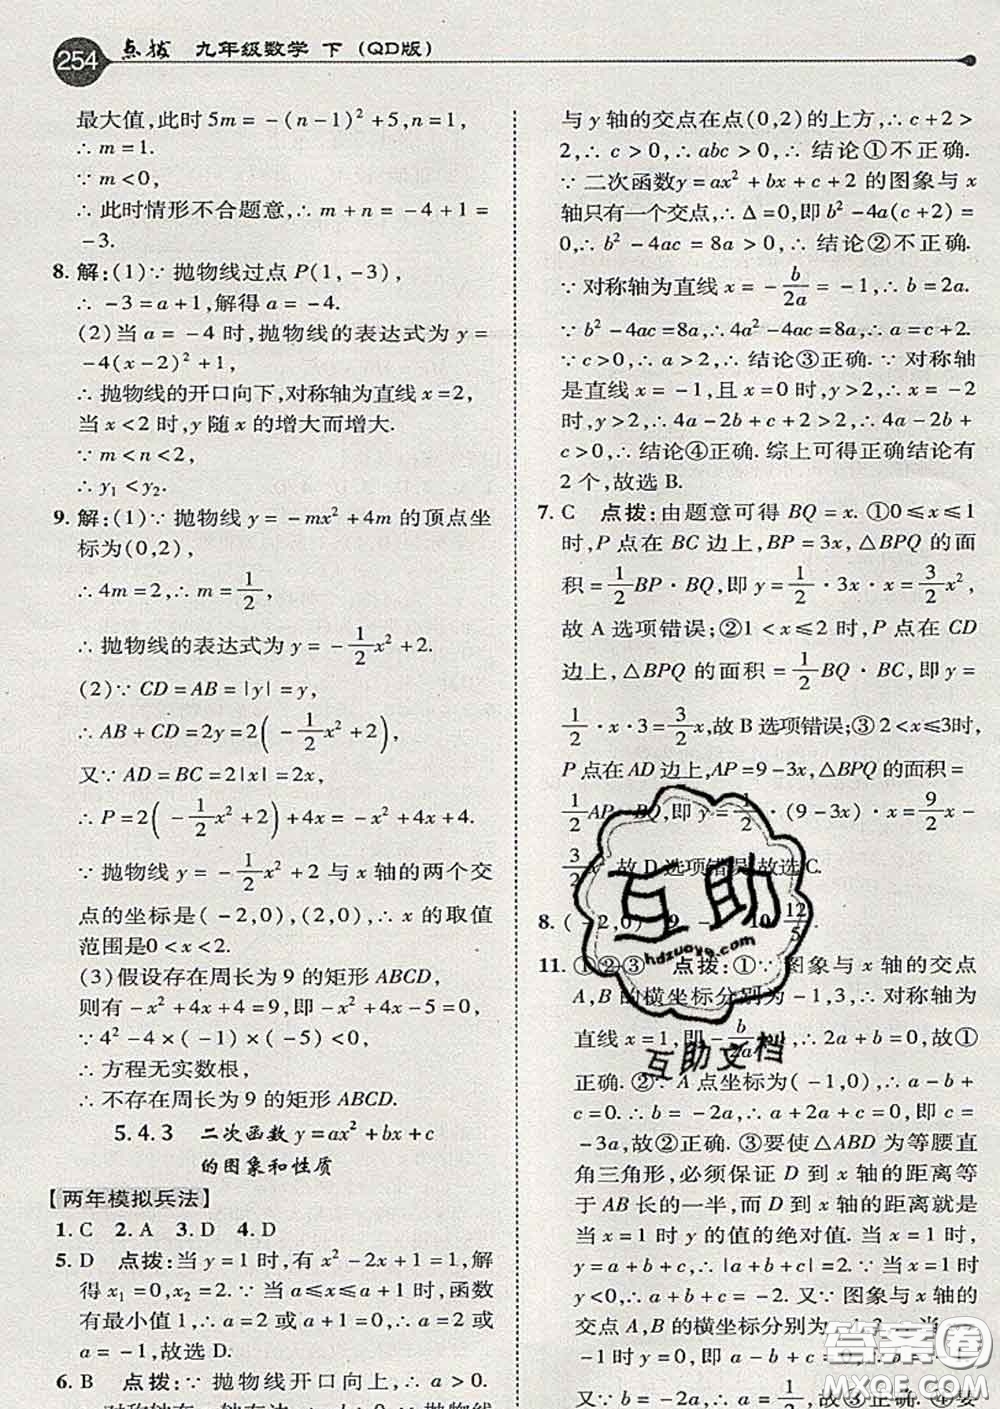 254 点拨 九年级数学 下 (QD版)
最大值,此时 5m = -(n-1)² + 5, n = 1,
∴ m = 1.
∵ m < 0,
∴ 此时情形不合题意,∴ m + n = -4 + 1 =
-3.
8. 解:(1)∵ 抛物线过点 P(1, -3),
∴ -3 = a + 1,解得 a = -4.
(2)当 a = -4 时,抛物线的表达式为 y =
-4(x-2)² + 1,
∴ 抛物线的开口向下,对称轴为直线 x = 2,
当 x < 2 时, y 随 x 的增大而增大.
∵ m < n < 2,
∴ y₁ < y₂.
9. 解:(1)∵ 抛物线 y = -mx² + 4m 的顶点坐
标为(0,2),
∴ 4m = 2,∴ m = 1/2,
∴ 抛物线的表达式为 y = -1/2 x² + 2.
(2)∵ CD = AB = |y| = y,
∴ AB + CD = 2y = 2(-1/2 x² + 2),
又∵ AD = BC = 2|x| = 2x,
∴ P = 2(-1/2 x² + 2) + 4x = -x² + 4x + 4.
∵ 抛物线 y = -1/2 x² + 2 与 x 轴的两个交
点的坐标是(-2,0),(2,0),∴ x 的取值
范围是0 < x < 2.
(3)假设存在周长为 9 的矩形 ABCD,
则有 -x² + 4x + 4 = 9,∴ -x² + 4x - 5 = 0,
∵ 4² - 4 × (-1) × (-5) < 0,
∴ 方程无实数根,
∴ 不存在周长为 9 的矩形 ABCD.
5.4.3 二次函数 y = ax² + bx + c
的图象和性质
【两年模拟兵法】
1. C 2. A 3. D 4. D
5. D 点拨:当 y = 1 时,有 x² - 2x + 1 = 1,解
得 x₁ = 0, x₂ = 2. ∵ 当 a ≤ x ≤ a + 1 时,函数
有最小值 1,∴ a = 2 或 a + 1 = 0,∴ a = 2 或
a = -1,故选 D.
6. B 点拨:∵ 抛物线开口向上,∴ a > 0.
与 y 轴的交点在点(0,2)的上方,∴ c + 2 >
2,∴ c > 0,∴ abc > 0,∴ 结论①不正确.
∵ 二次函数y = ax² + bx + c + 2 的图象与 x
轴只有一个交点,∴ Δ = 0,即 b² - 4a(c+2) =
0,∴ b² - 4ac = 8a > 0,∴ 结论②不正确.
∵ 对称轴为直线 x = -b/2a = -1,∴ b = 2a.
∵ b² - 4ac = 8a,∴ 4a² - 4ac = 8a,∴ a = c + 2.
∵ c > 0,∴ a > 2,∴ 结论③正确. ∵ 对称轴
是直线 x = -1,且 x = 0 时, y > 2,∴ x = -2
时, y > 2,∴ 4a - 2b + c + 2 > 2,∴ 4a - 2b +
c > 0,∴ 结论④正确. 综上可得正确结论有
2 个,故选 B.
7. C 点拨:由题意可得 BQ = x. ①0 ≤ x ≤ 1
时, P 点在 BC 边上, BP = 3x, △BPQ 的面
积 = 1/2 BP · BQ,即 y = 1/2 · 3x · x = 3/2 x²,
故 A 选项错误;②1 < x ≤ 2 时, P 点在 CD
边上, △BPQ 的面积 = 1/2 BQ · BC,即 y =
1/2 · x · 3 = 3/2 x,故 B 选项错误;③ 2 < x ≤ 3时,
P 点在 AD 边上, AP = 9 - 3x, △BPQ 的面积 =
1/2 AP · BQ,即 y = 1/2 · (9 - 3x) · x = 9/2 x -
3/2 x²,故 D 选项错误,故选 C.
8. (-2,0) 9. 10. 12/5
11. ①②③ 点拨:①∵ 图象与 x 轴的交点
A, B 的横坐标分别为 -1,3,∴ 对称轴为
直线 x = 1,即 -b/2a = 1,∴ 2a + b = 0,故①
正确. ②∵ A 点坐标为(-1,0),∴ a - b +
c = 0. ∵ b = -2a,∴ a + 2a + c = 0,即 c =
-3a,故②正确. ③要使△ABD 为等腰直
角三角形,必须保证 D 到 x 轴的距离等
于 AB 长的一半,而 D 到 x 轴的距离为
当 x = 1 时 y 的值的绝对值. 当 x = 1 时,
y = a + b + c,∴ |a + b + c| = 2. ∵ 当 x = 1 时
y < 0,∴ a + b + c = -2. 又∵ 图象与 x 轴的
交点 A, B 的横坐标分别为
-1 时 y = 0,即 a - b + c = 0,
又∵ b = -2a,∴ a =
互助
hdzuoye.com
互助文档
答案圈
MXQE.COM